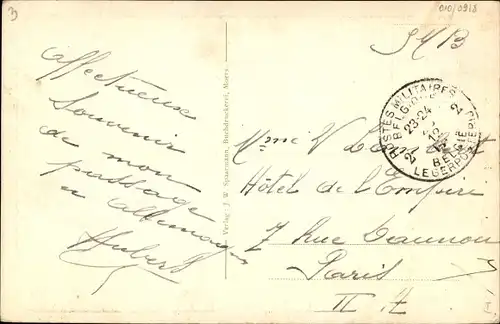 3
010/0918
S M B
Affectueux
Souvenir
de mon
passage
Hubert
Verlag: J. W. Spaarmann, Buchdruckerei, Moers.
POSTES MILITAIRES
BELGIQUE
23-24
BELGIE
LEGERPOSTERIJ
2
2
Mme V
Hôtel de l'Empire
7 Rue Daunou
Paris
II e